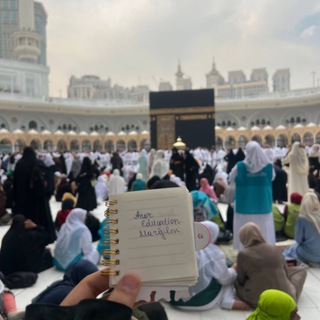 Anor
Education
Margilon